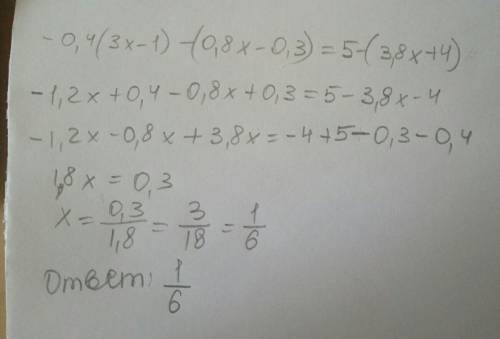 -0,4(3x-1)-(0,8x-0,3)=5-(3,8x+4)
-1,2x+0,4-0,8x+0,3=5-3,8x-4
-1,2x-0,8x+3,8x=-4+5-0,3-0,4
1,8x=0,3
x=0,3/1,8=3/18=1/6
Ответ: 1/6